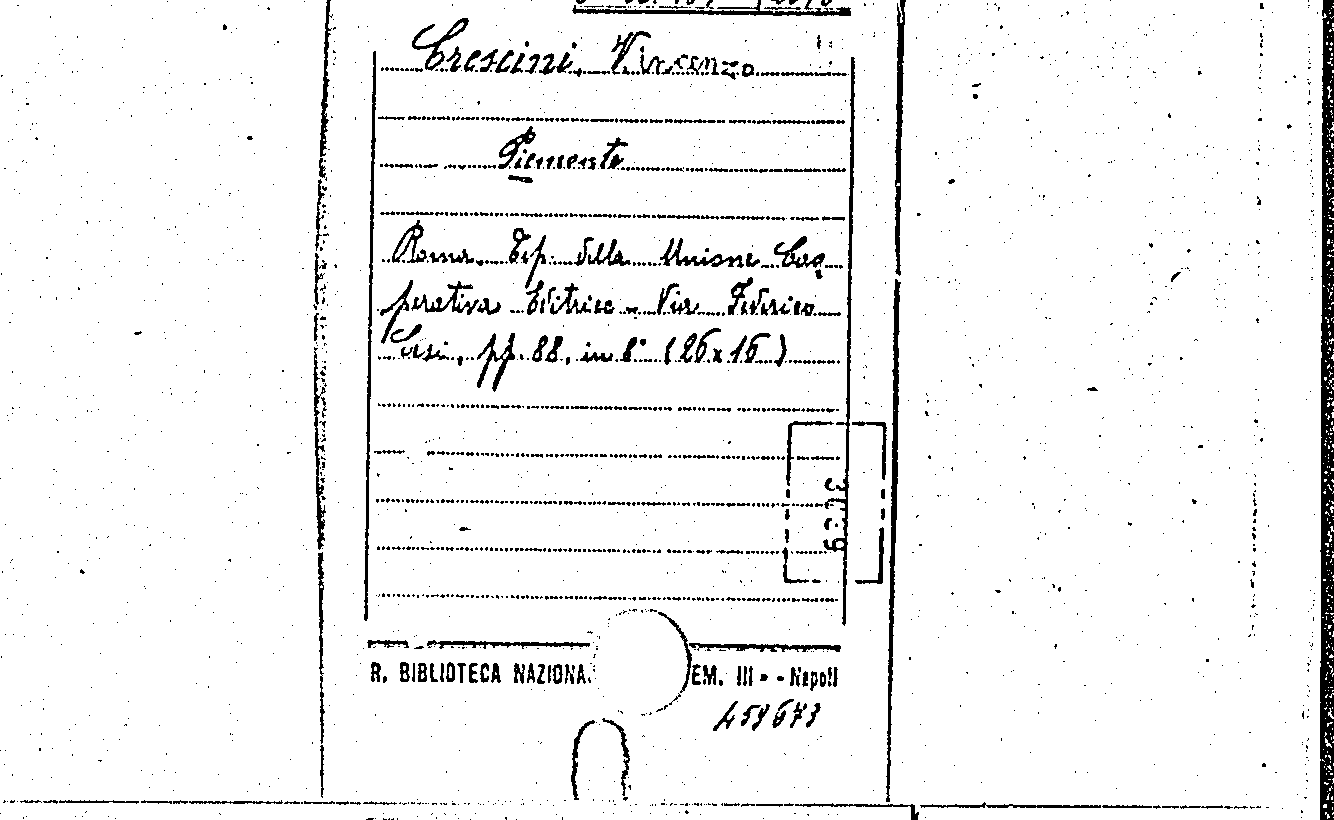 Crescini, Vincenzo
Piemonte
Roma. Tip. della Unione Coo
perativa Editrice - Via Federico
Cesi, pp. 88, in 8° (26x16)
R. BIBLIOTECA NAZIONA. EM. III - - Napoli
459673